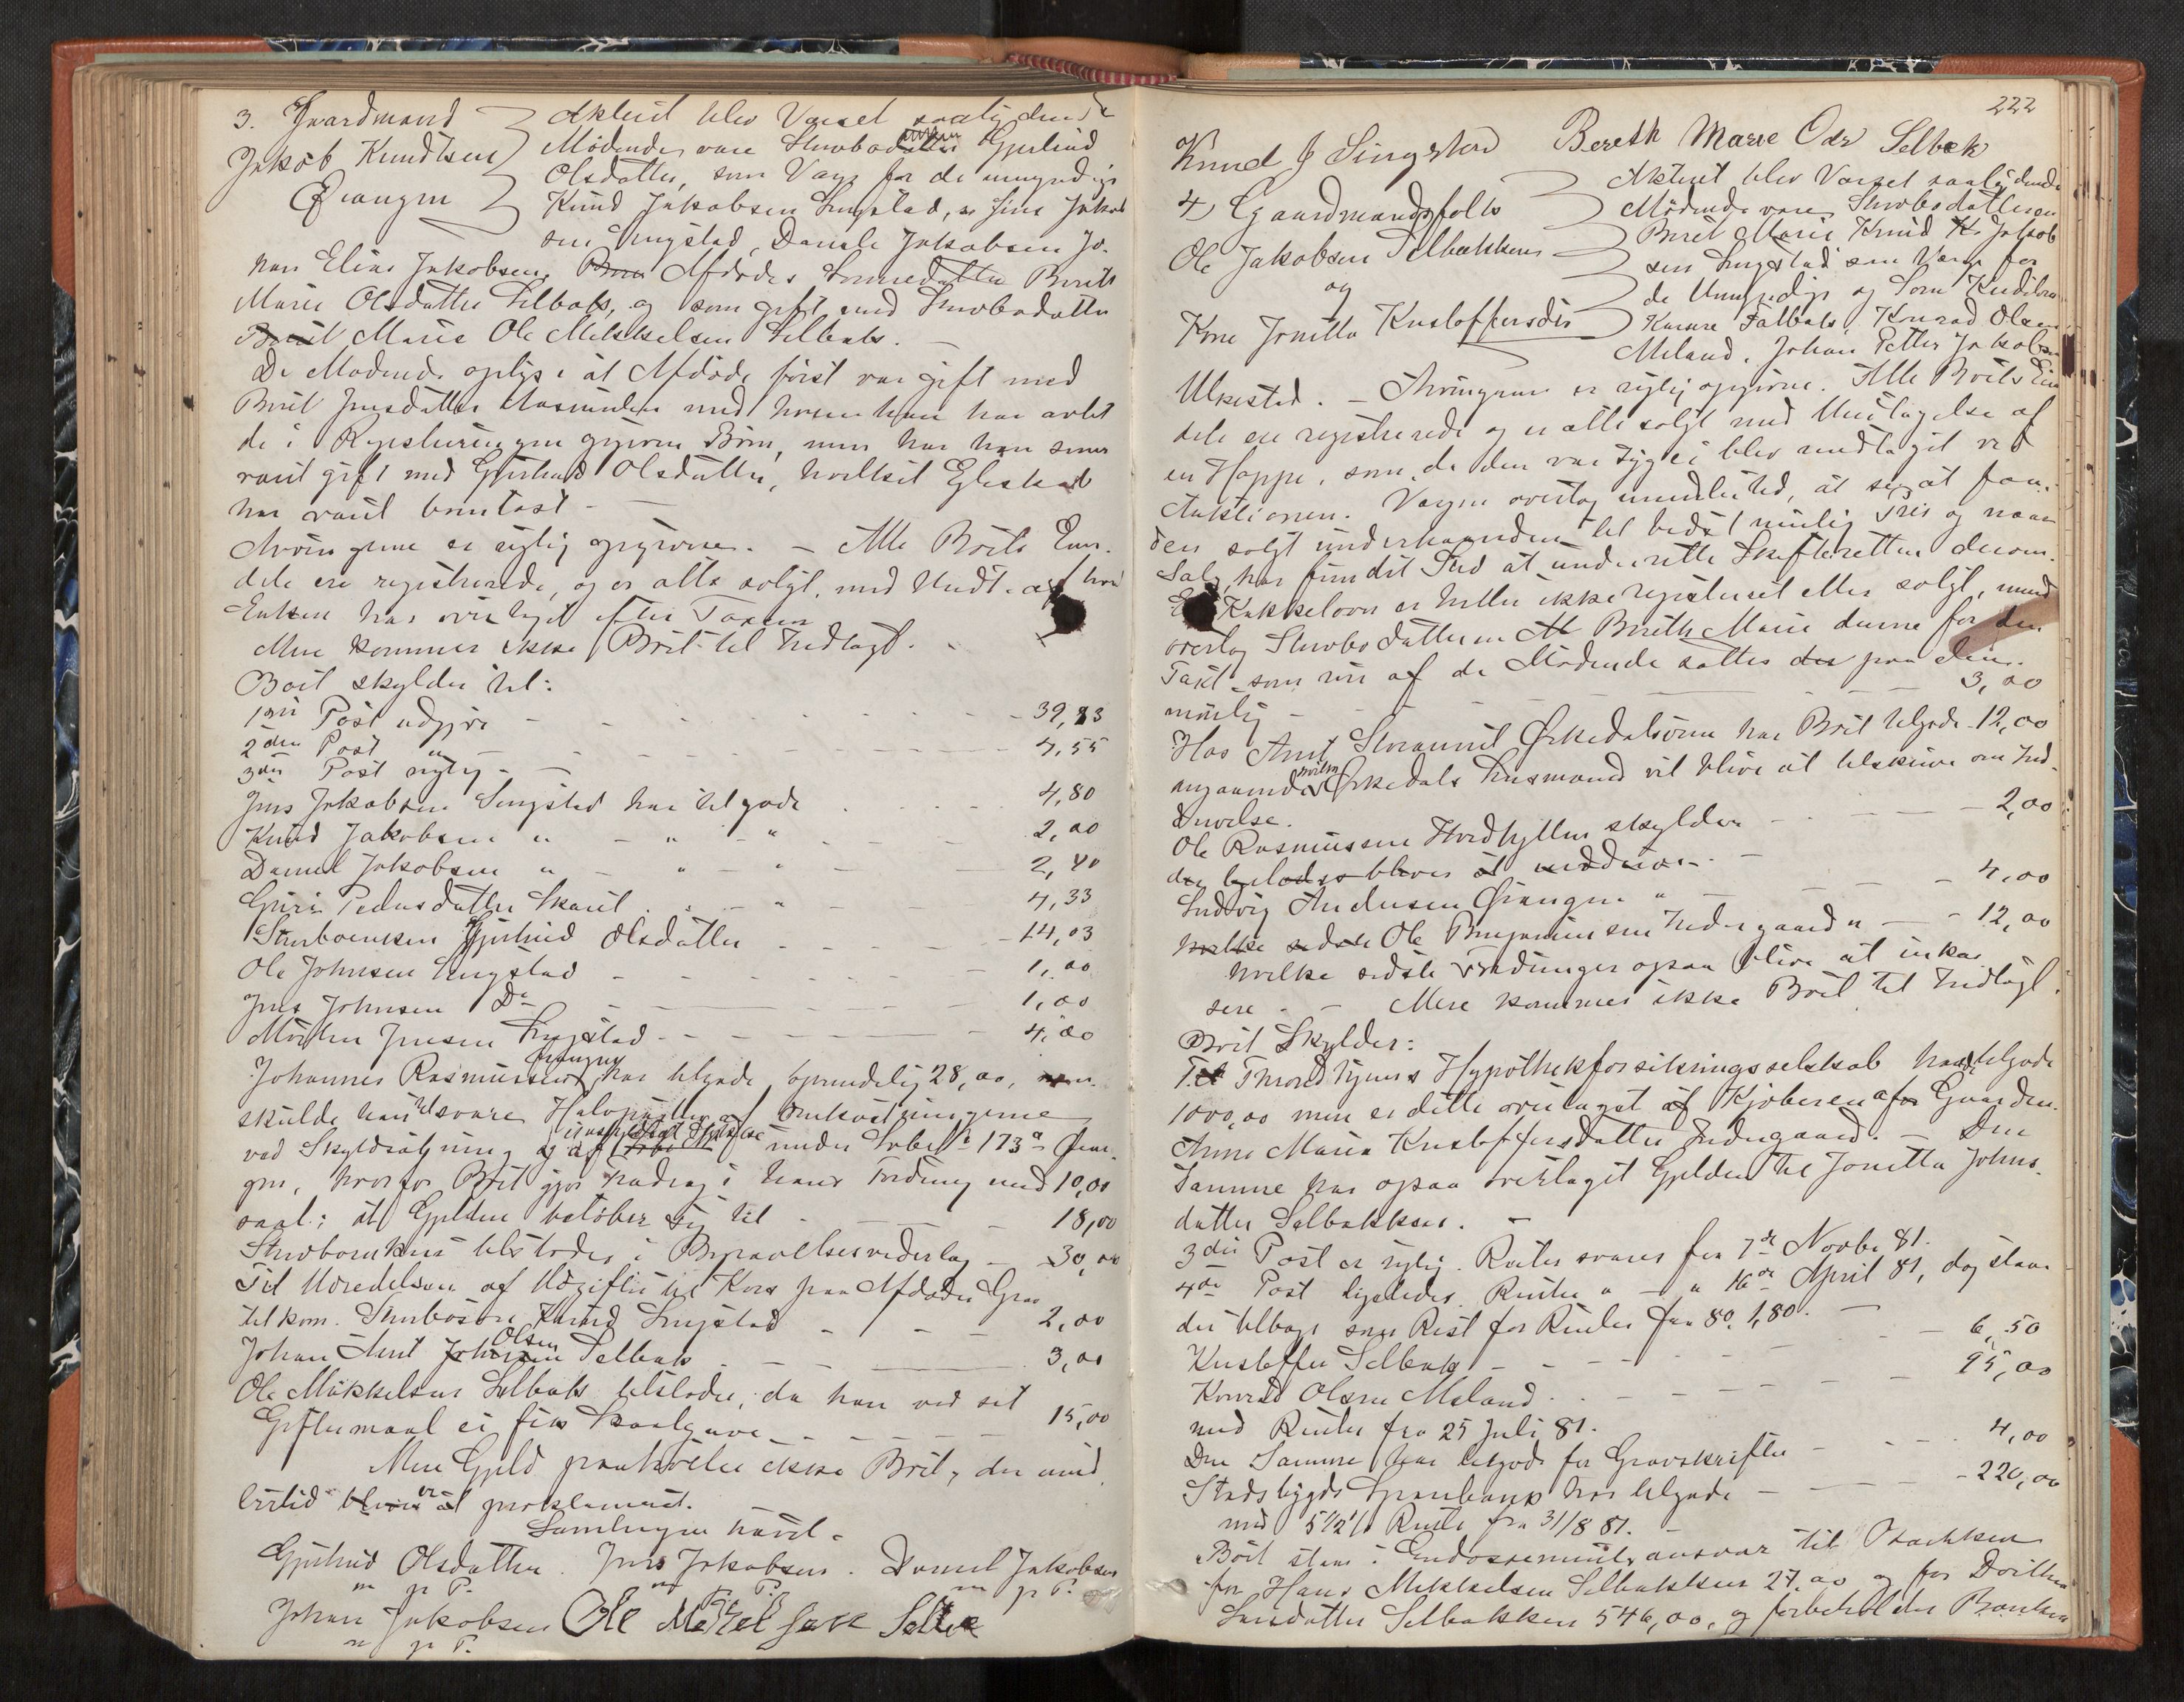 3. Gaardmand
Jakob Knudtsen
Øiangen
Aktut blev Varsel saalydende
Mødende vare Stervbo Gjertrud
Olsdatter, som Værge for de umyndige
Knud Jakobsen Singstad, Jens Jakob
sen Singstad, Daniel Jakobsen Jo-
han Elias Jakobsen, Afdødes Sønnedatter Berith
Marie Olsdatter Selbæk, og som gift med Stervbodatter
Berit Marie Ole Mikkelsen Selbæk.
De Mødende oplyse at Afdøde først var gift med
Berit Jensdatter med hvem han har avlet
de i Registreringen opgivne Børn, men har han senere
været gift med Gjertrud Olsdatter, hvilket Egteskab
har været barnløst.
Arvingerne er rigtig opgivne. - Alle Boets Eien-
dele ere registrerede, og er alt solgt, med Undt. af hvad
Enken har overtaget efter Taxten
Mere kommer ikke Boet til Indtægt.
Boet skylder til:
1ste Post udgjør - 39,83
2den Post " - 4,55
3die Post rigtig -
Jens Jakobsen Singstad har tilgode - 4,80
Knud Jakobsen " - " - " 2,00
Daniel Jakobsen " - " - " 2,40
Guri Pedersdatter Skaret - " - 4,33
Stervboenken Gjertrud Olsdatter - 14,03
Ole Johnsen Singstad - 1,00
Jens Johnsen Do - 1,00
Morten Jensen Singstad - 4,00
Johannes Rasmussen Øiangen har tilgode oprindelig 28,00, men
skulde han tilsvare Halvparten af Omkostningerne
ved Skyldsætning og af under Løbe No 173a Øian-
gen, hvorfor Boet gjør Fradrag i hans Fordring med 10,00
saal: at Gjelden beløber sig til - 18,00
Stervboenken tilstodes i Begravelsesvederlag - 30,00
Til Udredelsen af Udgifter til Kors paa Afdødes Grav
tilkom. Stervbosøn Knud Singstad - 2,00
Johan Arnt Olsen Selbæk - 3,00
Ole Mikkelsen Selbæk tilstodes, da han ved sit
Giftermaal ei fik Skaalgave - 15,00
Mere Gjeld paahviler ikke Boet, der imid
lertid er proklameret.
Samlingen hævet.
Gjertrud Olsdatter. Jens Jakobsen. Daniel Jakobsen
m p P. m p P. m p P.
Johan Jakobsen Ole Mekkelsen Selbæk
m p P.
222
Knud J Singstad Bereth Marie Ols Selbæk
4) Gaardmandsfolk
Ole Jakobsen Selbækken
og
Kone Jonetta Kristoffersdtr
Aktet blev Varsel saalydende
Mødende vare Stervbodatteren
Berit Marie Knud Jakob
sen Singstad som Værge for
de Umyndige og Som Kreditorer
Selbæk, Konrad Olsen
Meland, Johan Petter Jakobsen
Ulvested. - Arvingerne er rigtig opgivne. Alle Boets Eien
dele ere registrerede og er alle solgt med Undtagelse af
en Hoppe, som da den var syg ei blev medtaget ved
Auktionen. Værgen overtog imidlertid, at søge at faa
den solgt underhaanden til bedst mulig Pris og naar
Salg har fundet Sted at underrette Skifteretten derom.
En Kakkelovn er heller ikke registreret eller solgt, men
overtog Stervbodatteren Berith Marie denne for den
Taxt, som nu af de Mødende sattes paa den
nemlig - 3,00
Hos Arnt Størannet Ørkedalsøren har Boet tilgode 12,00
angaaende hvilken Ørkedals Lensmand vil blive at tilskrive om Ind
drivelse.
Ole Rasmussen Hordhyllen skylder - 2,00
Ludvig Andersen Øiangen " - 4,00
Ole Benjaminsen Indergaard " - 12,00
hvilke sidste Fordringer ogsaa blive at inkas
sere. - Mere kommer ikke Boet til Indtægt.
Boet Skylder:
Throndhjems Hypothekforsikringsselskab havde tilgode
1000,00 men er dette overtaget af Kjøberen af Gaarden.
Anne Maria Kristoffersdatter Indergaard. - Den
Samme har ogsaa overtaget Gjelden til Jonetta Johns
datter Selbækken.
3die Post er rigtig. Renter svares fra 7de Novbr 81.
4de Post ligeledes. Renter " - " 16de April 81, dog staar
der tilbage som Rest for Renter fra 80, 1,80.
Kristoffer Selbæk - 6,50
Konrad Olsen Meland - 95,00
med Renter fra 25 Juli 81.
Den Samme har tilgode for Gravskrifter - 4,00
Stadsbygds Sparebank har tilgode - 220,00
med 5 1/2 % Rente fra 31/8 81.
Boet staar i Endossementsansvar til Banken
for Hans Mikkelsen Selbækken 27,00 og for Dorthea
Larsdatter Selbækken 546,00, og forbeholder Banken